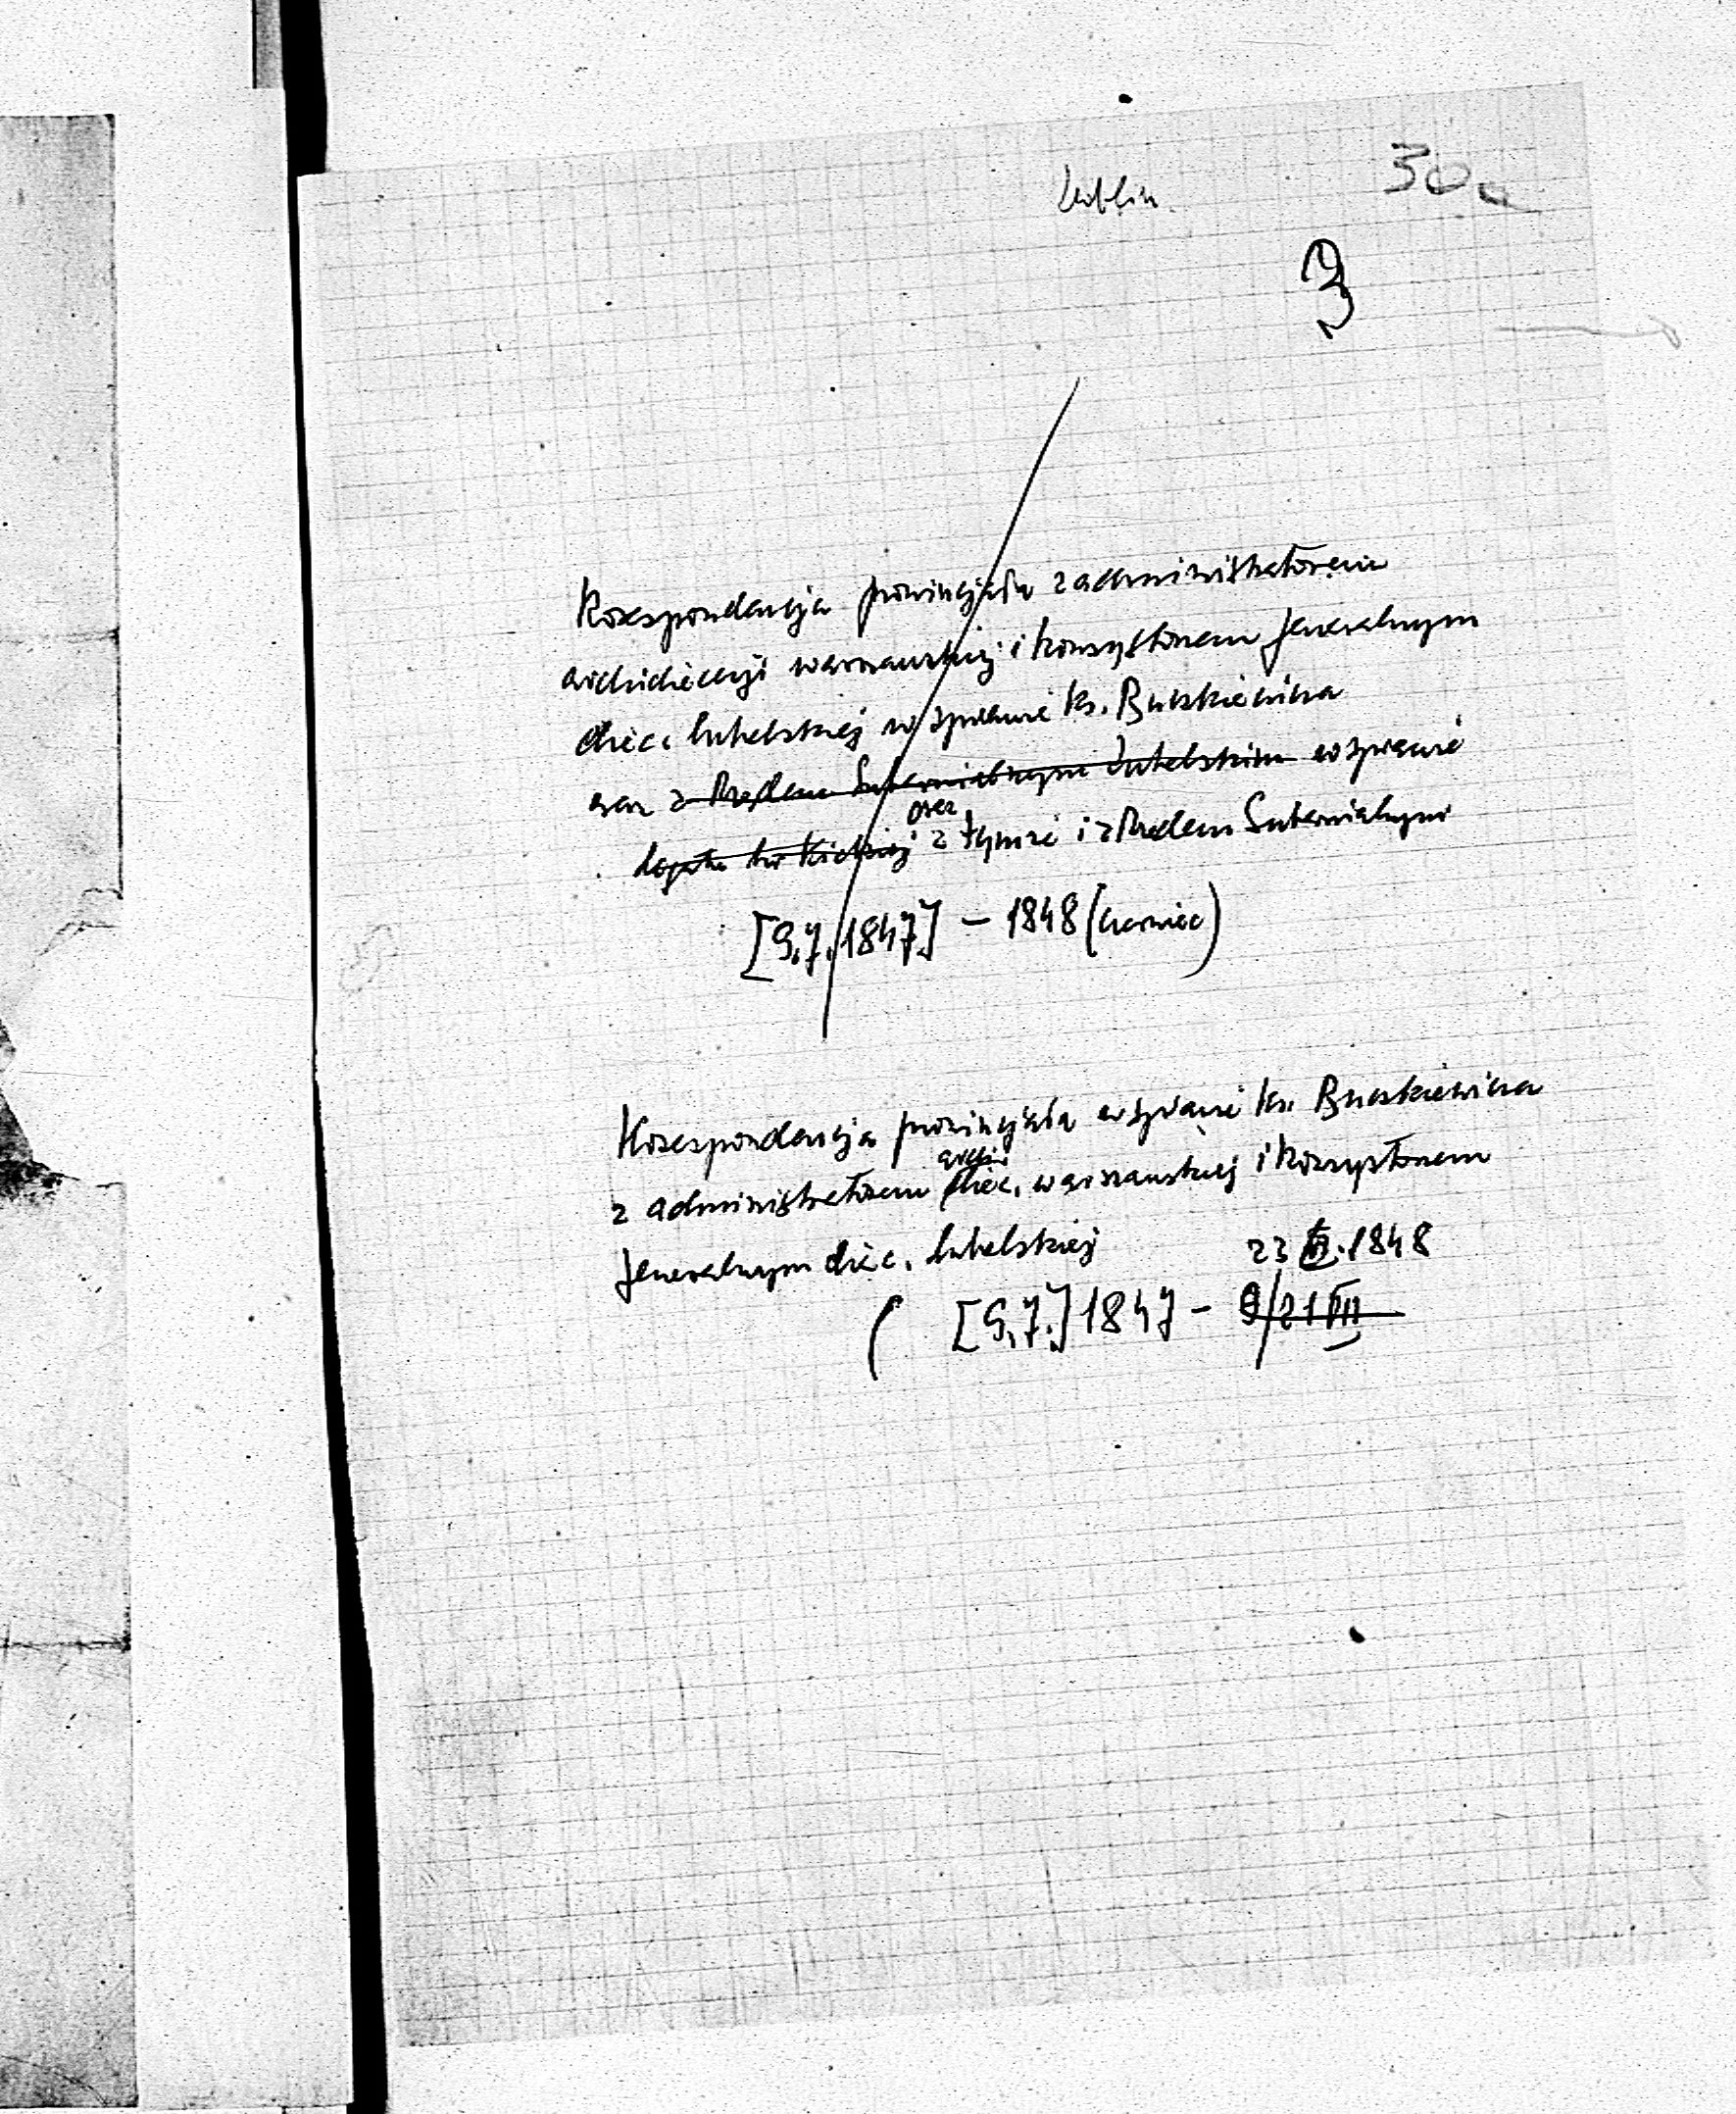 Lublin
30a
3
Korespondencja prowincjała z administratorem
archidiecezji warszawskiej i konsystorzem jeneralnym
diec. lubelskiej w sprawie ks. Buszkiewicza
oraz z Rządem Gubernialnym Lubelskim w sprawie
oraz
z tymże i z Rządem Gubernialnym
[S.J. 1847] – 1848 (czerwiec)
Korespondencja prowincjała w sprawie ks. Buszkiewicza
archi
z administratorem diec. warszawskiej i konsystorzem
jeneralnym diec. lubelskiej
23 1848
( [S.J.] 1847 – 9/21 VII